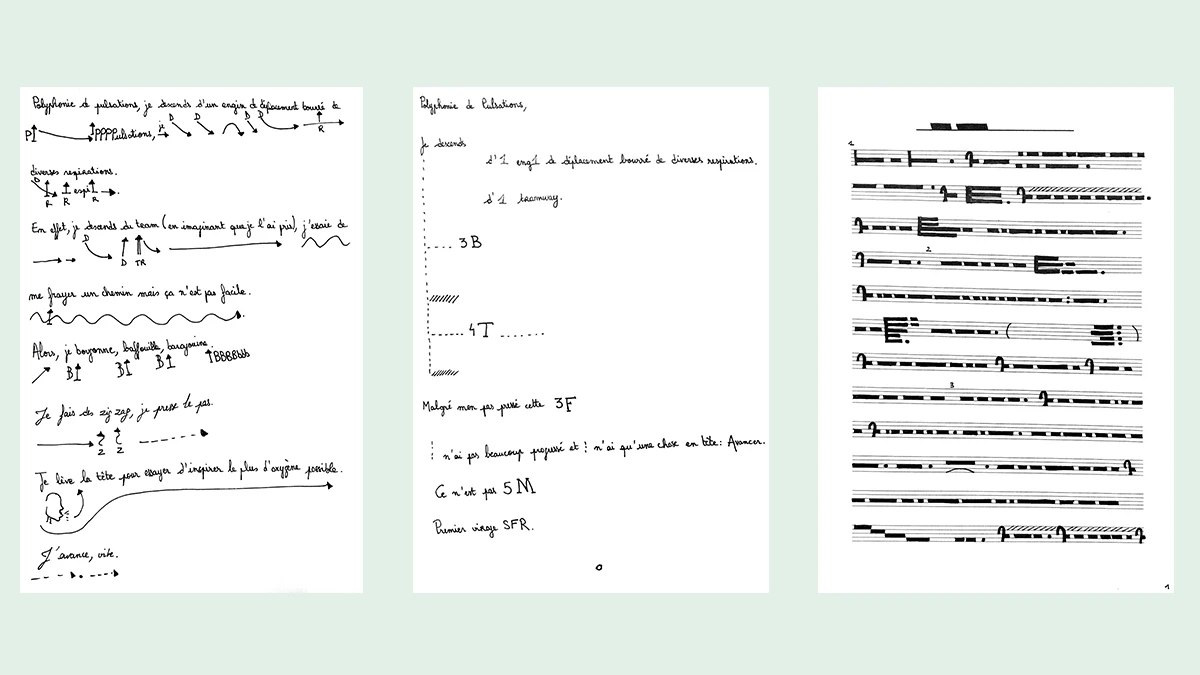 Polyphonie de pulsations, je descends d'un engin de déplacement bourré de
P PPPPulsations, je D D D D R
diverses respirations.
D R R espi R
En effet, je descends du tram (en imaginant que je l'ai pris), j'essaie de
D D TR
me frayer un chemin mais ça n'est pas facile.
Alors, je boyonne, baffouille, baragouine.
B B B BBBBbbb
Je fais des zig zag, je presse le pas.
Z Z
Je lève la tête pour essayer d'inspirer le plus d'oxygène possible.
J'avance, vite.
Polyphonie de Pulsations,
Je descends
d'1 eng1 de déplacement bourré de diverses respirations.
d'1 tramway.
3B
4T
Malgré mon pas pressé cette 3F
n'ai pas beaucoup progressé et n'ai qu'une chose en tête: Avancer.
Ce n'est pas 5M
Premier virage SFR.
0
1
2
3
1